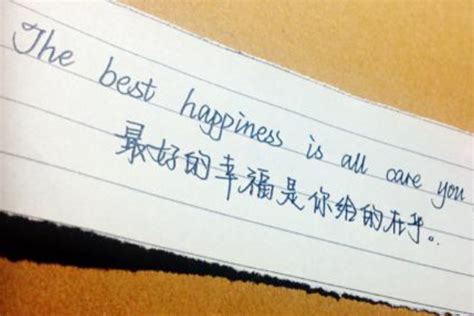 The best happiness is all care you
最好的幸福是你给的在乎。